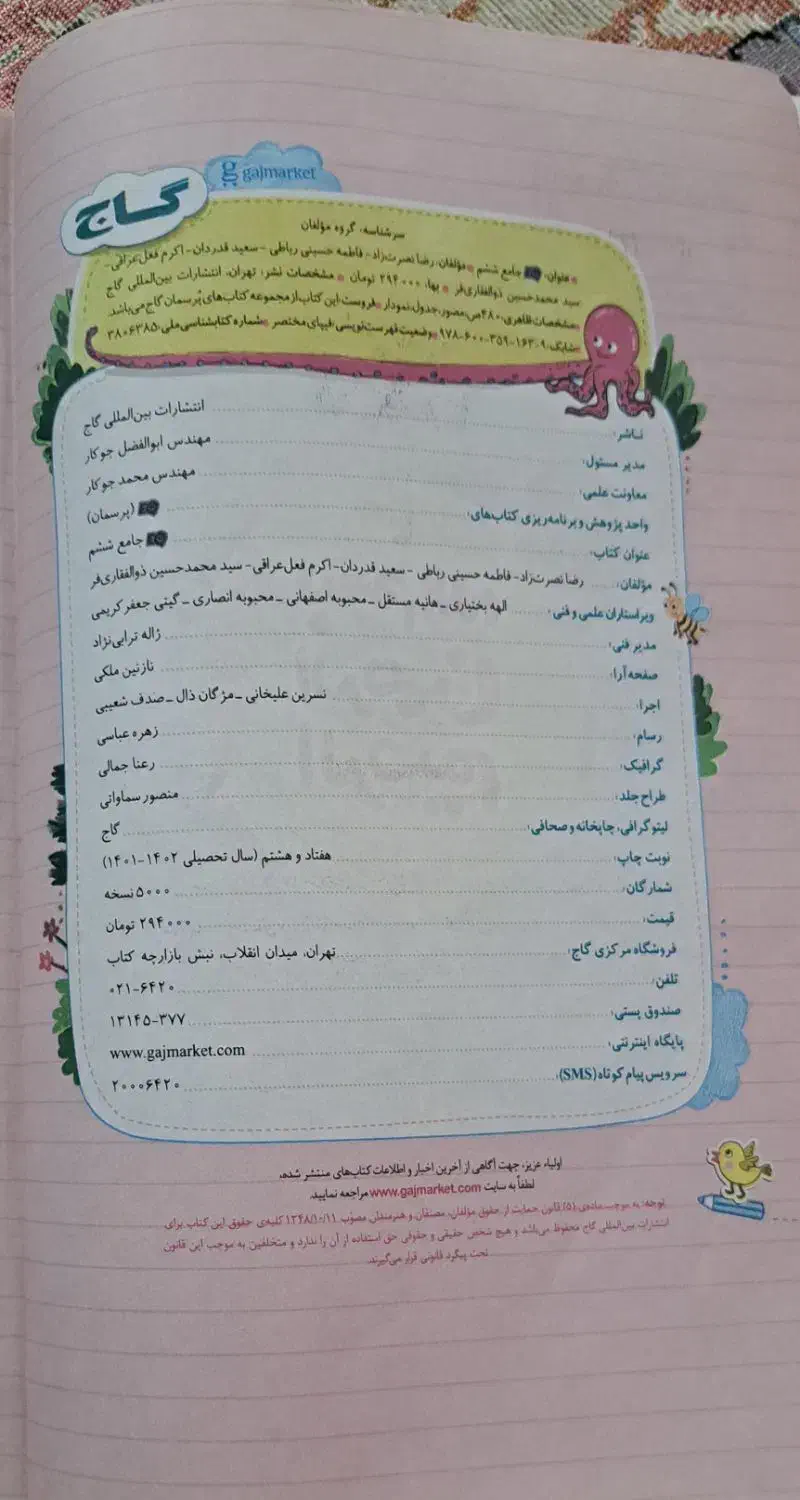 gajmarket
گاج
سرشناسه: گروه مؤلفان
عنوان: جامع ششم مؤلفان: رضا نصرت‌زاد - فاطمه حسینی رباطی - سعید قدردان - اکرم فعل‌عراقی -
سید محمدحسین ذوالفقاری‌فر بها: ۲۹۴۰۰۰ تومان مشخصات نشر: تهران، انتشارات بین‌المللی گاج
مشخصات ظاهری: ۴۸۰ص، مصور، جدول، نمودار فروست: این کتاب از مجموعه کتاب‌های پُرسمان گاج می‌باشد.
شابک: ۹-۱۶۳-۳۵۹-۶۰۰-۹۷۸ وضعیت فهرست‌نویسی: فیپای مختصر شماره کتابشناسی ملی: ۳۸۰۶۳۸۵
ناشر: انتشارات بین‌المللی گاج
مدیر مسئول: مهندس ابوالفضل جوکار
معاونت علمی: مهندس محمد جوکار
واحد پژوهش و برنامه‌ریزی کتاب‌های: (پرسمان)
عنوان کتاب: جامع ششم
مؤلفان: رضا نصرت‌زاد - فاطمه حسینی رباطی - سعید قدردان - اکرم فعل‌عراقی - سید محمدحسین ذوالفقاری‌فر
ویراستاران علمی و فنی: الهه بختیاری - هانیه مستقل - محبوبه اصفهانی - محبوبه انصاری - گیتی جعفر کریمی
مدیر فنی: ژاله ترابی‌نژاد
صفحه‌آرا: نازنین ملکی
اجرا: نسرین علیخانی - مژگان ذال - صدف شعیبی
رسام: زهره عباسی
گرافیک: رعنا جمالی
طراح جلد: منصور سماواتی
لیتوگرافی، چاپخانه و صحافی: گاج
نوبت چاپ: هفتاد و هشتم (سال تحصیلی ۱۴۰۲-۱۴۰۱)
شمارگان: ۵۰۰۰ نسخه
قیمت: ۲۹۴۰۰۰ تومان
فروشگاه مرکزی گاج: تهران، میدان انقلاب، نبش بازارچه کتاب
تلفن: ۰۲۱-۶۴۲۰
صندوق پستی: ۱۳۱۴۵-۳۷۷
پایگاه اینترنتی: www.gajmarket.com
سرویس پیام کوتاه (SMS): ۲۰۰۰۶۴۲۰
اولیاء عزیز، جهت آگاهی از آخرین اخبار و اطلاعات کتاب‌های منتشر شده،
لطفاً به سایت www.gajmarket.com مراجعه نمایید.
توجه: به موجب ماده‌ی (۵) قانون حمایت از حقوق مؤلفان، مصنفان و هنرمندان مصوّب ۱۳۴۸/۱۰/۱۱ کلیه‌ی حقوق این کتاب برای
انتشارات بین‌المللی گاج محفوظ می‌باشد و هیچ شخص حقیقی و حقوقی حق استفاده از آن را ندارد و متخلفین به موجب این قانون
تحت پیگرد قانونی قرار می‌گیرند.